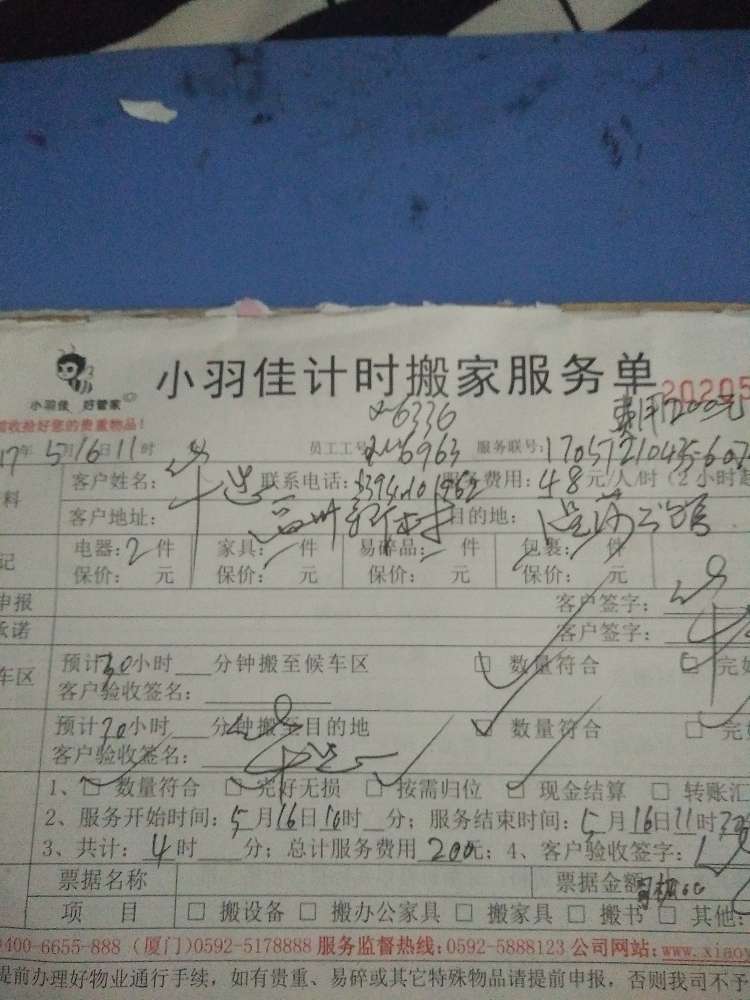 小羽佳计时搬家服务单
20205
小羽佳 好管家
验收捡好您的贵重物品!
6336
费用200元
17年5月16日11时 员工工号: 6963 服务联号:
客户姓名: 联系电话: 服务费用:48元/人/时(2小时起
客户地址: 目的地:
电器:2件 家具: 件 易碎品: 件 包裹: 件
保价: 元 保价: 元 保价: 元 保价: 元
申报 客户签字:
承诺 客户签字:
车区 预计30小时 分钟搬至候车区 □ 数量符合 □ 完好
客户验收签名:
预计30小时 分钟搬至目的地 □ 数量符合 □ 完好
客户验收签名:
1、□ 数量符合 □ 完好无损 □ 按需归位 □ 现金结算 □ 转账汇
2、服务开始时间:5月16日10时 分;服务结束时间:5月16日11时
3、共计:4时 分;总计服务费用200元;4、客户验收签字:
票据名称 票据金额
项 目 □ 搬设备 □ 搬办公家具 □ 搬家具 □ 搬书 □ 其他:
0400-6655-888 (厦门)0592-5178888 服务监督热线:0592-5888123 公司网站:www.xiaoy
提前办理好物业通行手续,如有贵重、易碎或其它特殊物品请提前申报,否则我司不予